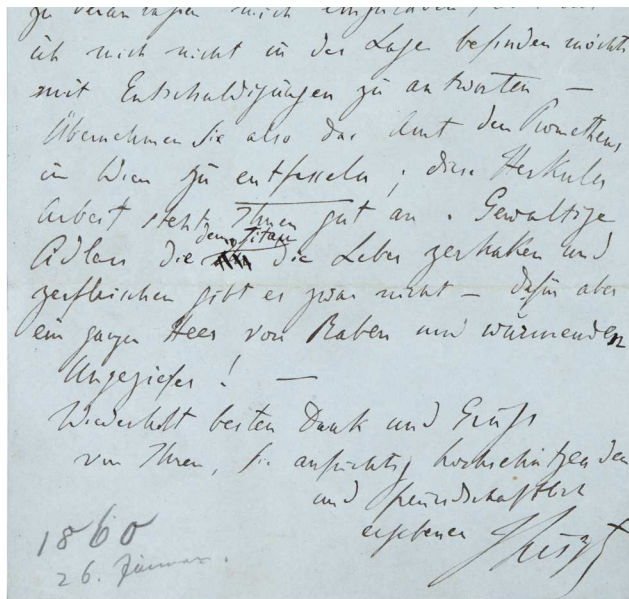 zu veranlassen mich einzuladen,
ich mich nicht in der Lage befinden möchte
mit Entschuldigungen zu antworten —
Übernehmen Sie also das Amt den Prometheus
in Wien zu entfesseln; diese Herkules
Arbeit steht Ihnen gut an. Gewaltige
Adler die dem Titan die Leber zerhaken und
zerfleischen gibt es zwar nicht — dafür aber
ein ganzes Heer von Raben und würmenden
Ungeziefer! —
Wiederholt besten Dank und Gruß
von Ihren, Sie aufrichtig hochschätzenden
und freundschaftlich
ergebenen FLiszt
1860
26. Januar.